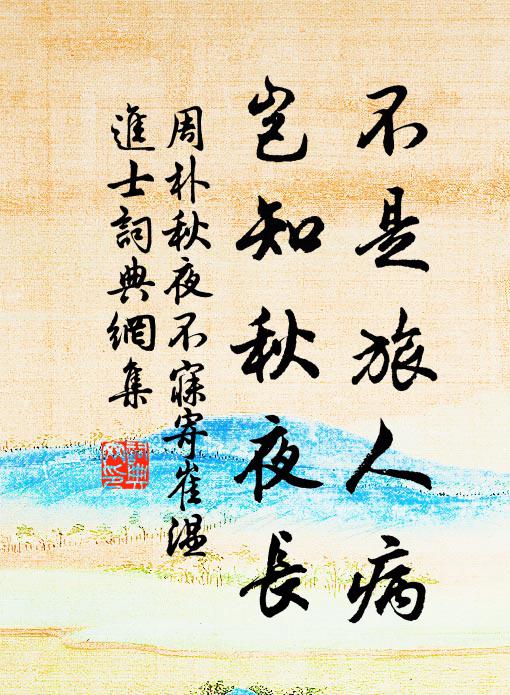 不是旅人病
豈知秋夜長
周朴秋夜不寐寄崔溫
進士詞典網集